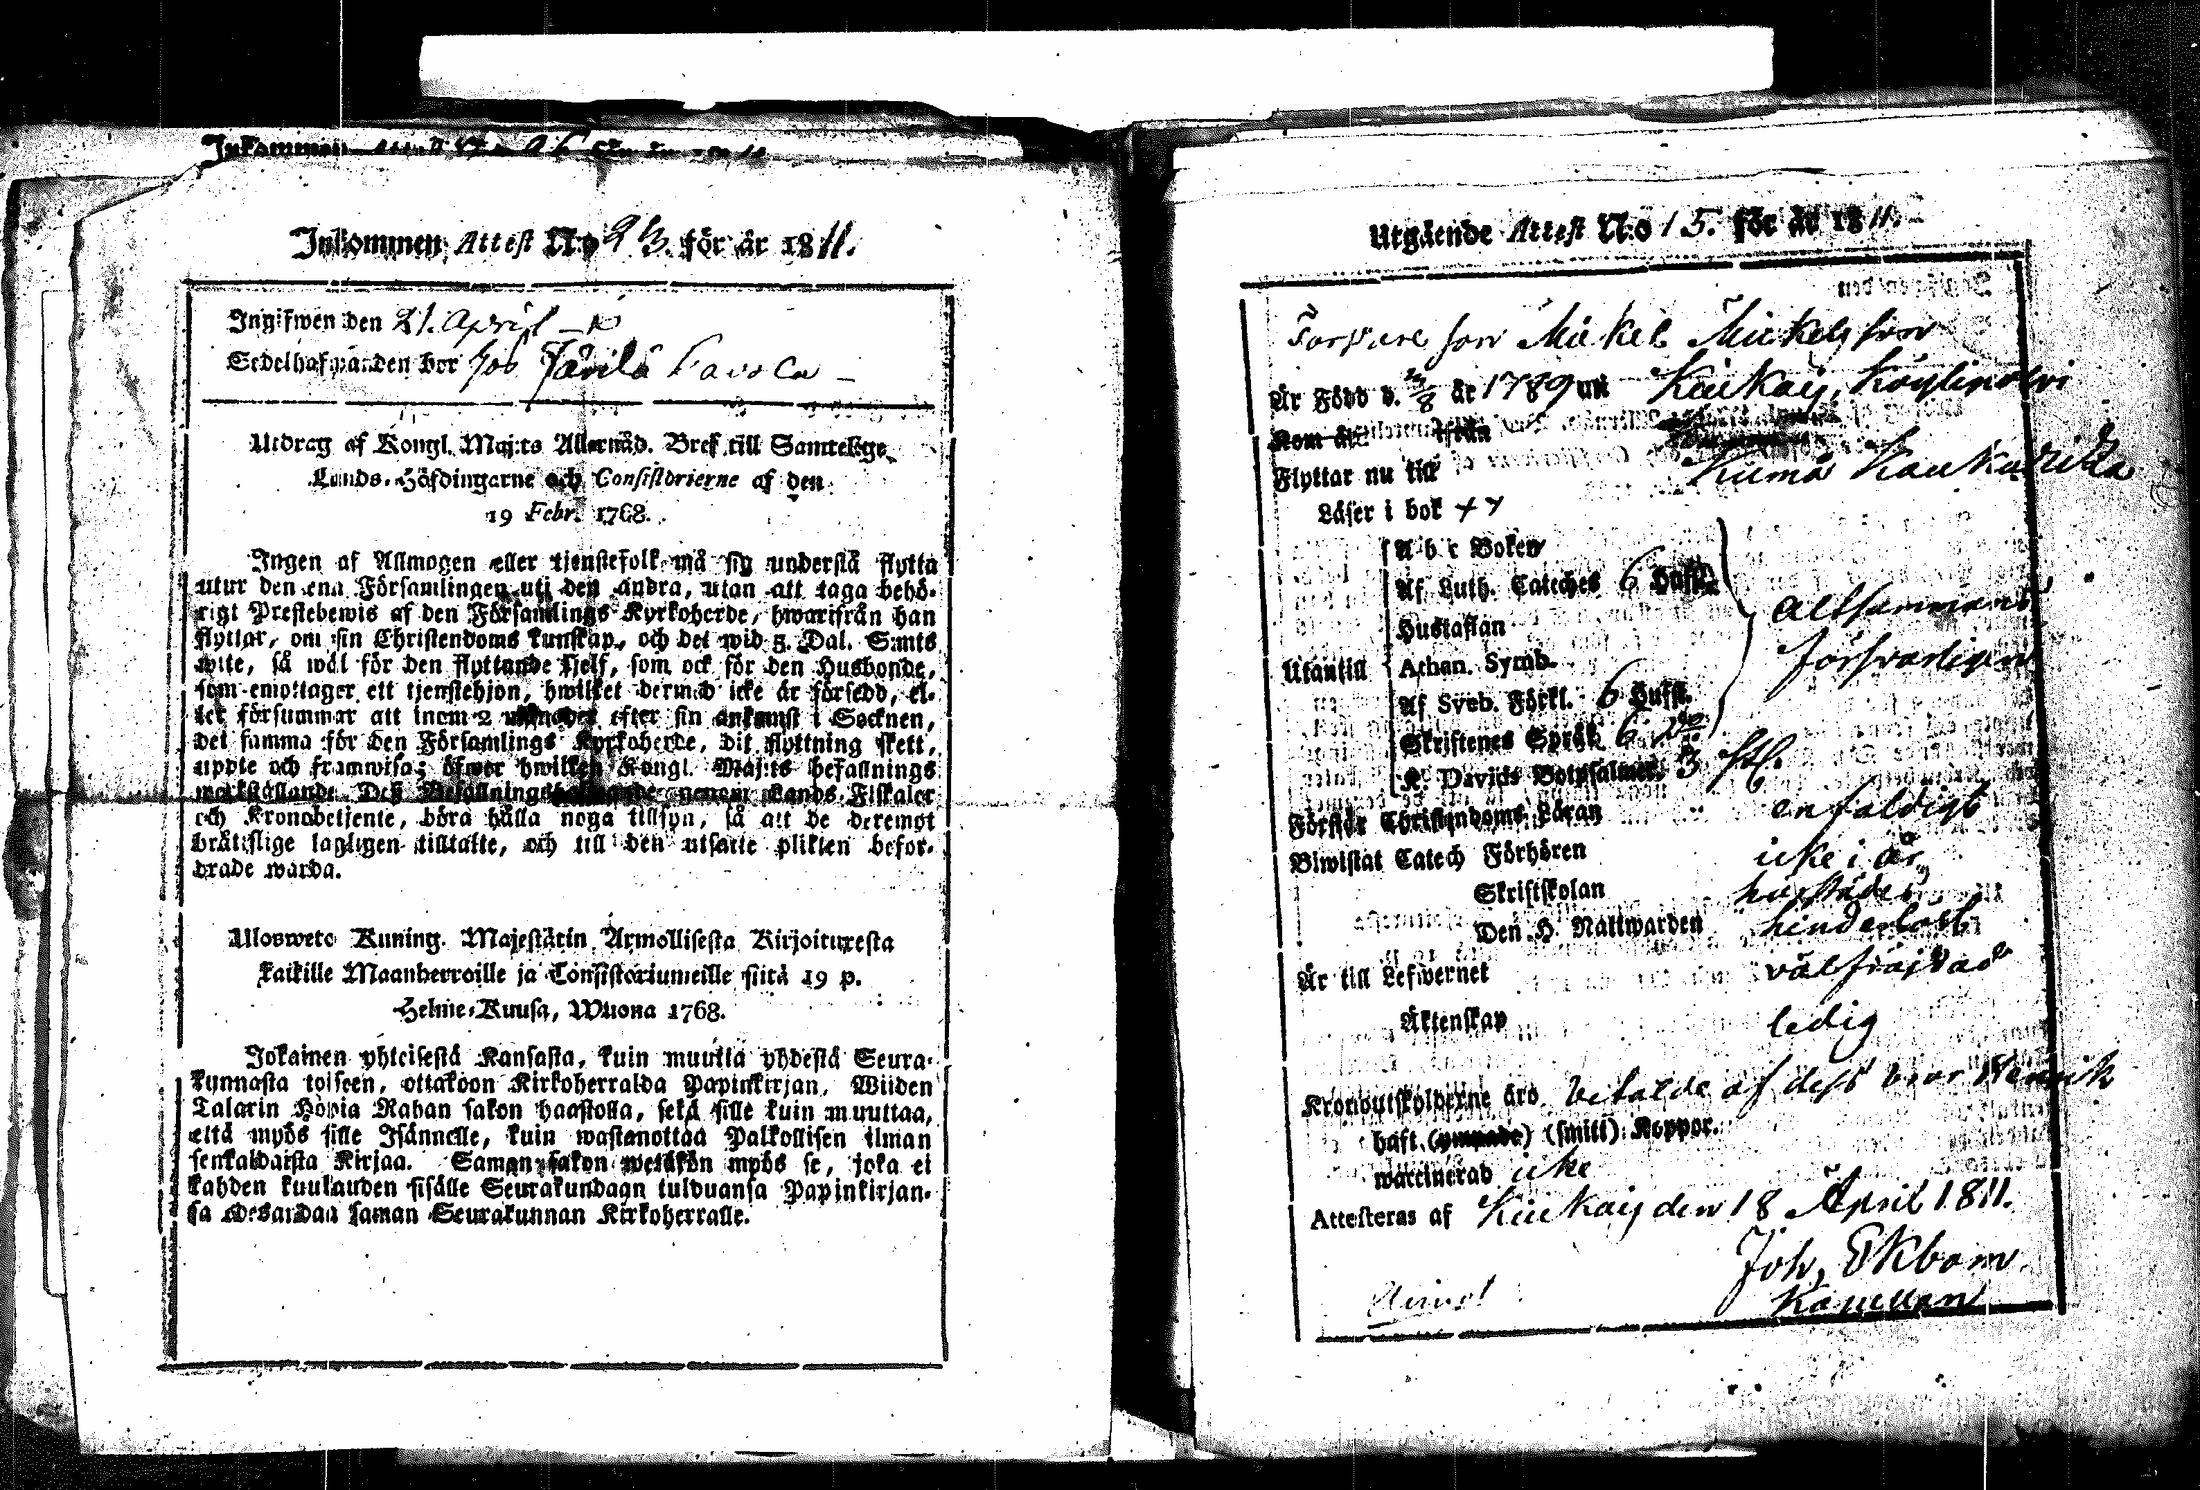 Inkommen
Inkommen Attest N:o 23. för år 1811.
Ingifwen den 21. April
Sedelhafwanden bor hos Järilä
Utdrag af Kongl. Maj:ts Allernåd. Bref till Samtelige
Lands-Höfdingarne och Consistorierne af den
19 Febr. 1768.
Ingen af Allmogen eller tjenstefolk må sig understå flytta
utur den ena Församlingen uti den andra, utan att taga behö-
rigt Prestebewis af den Församlings Kyrkoherde, hwarifrån han
flyttar, om sin Christendoms kunskap, och det wid 5. Dal. S:mts
wite, så wäl för den flyttande sjelf, som ock för den Husbonde,
som emottager ett tjenstehjon, hwilket dermed icke är försedd, el-
ler försummar att inom 2 månader efter sin ankomst i Socknen,
det samma för den Församlings Kyrkoherde, dit flyttning skett,
uppte och framwisa; öfwer hwilken Kongl. Maj:ts befallnings
werkställande Deß Befallningshafwande genom Lands-Fiskaler
och Kronobetjente, böra hålla noga tillsyn, så att de deremot
brätslige lagligen tilltalte, och till den utsatte plikten befor-
drade warda.
Ulosweto Kuning. Majestätin Armollisesta Kirjoituxesta
kaikille Maanherroille ja Consistoriumeille siitä 19 p.
Helme-Kuusa, Wuona 1768.
Jokainen yhteisestä Kansasta, kuin muutta yhdestä Seura-
kunnasta toiseen, ottakoon Kirkoherralda Papinkirjan, Wiiden
Talarin Höpia Rahan sakon haastolla, sekä sille kuin muuttaa,
että myös sille Isännelle, kuin wastanottaa Palkollisen ilman
senkaldaista Kirjaa. Saman sakon wetäkön myös se, joka ei
kahden kuukauden sisälle Seurakundaan tulduansa Papinkirjan-
sa edesandaa saman Seurakunnan Kirkoherralle.
Utgående Attest N:o 15. för år 1811.
Torpare son Mickel Mickelsson
Är Född d. år 1789 uti Kiukais, Köylipolvi
Kom åt ifrån
Flyttar nu till Kumå
Läser i bok
A b c Boken
Af Luth. Cateches 6 Hufst.
Hustaflan
Utantill Athan. Symb. altsammans
Af Sveb. Förkl. 6 Hufst. försvarligen
Skriftenes Språk 6 D:o
K. Davids Botpsalmer. 3 st.
Förstår Christendoms Läran enfaldigt
Biwistat Catech Förhören icke i år
Skriftskolan härstädes
Den H. Nattwarden hinderlöst
Är till Lefwernet välfräjdad
Äktenskap ledig
Kronoutskylderne äro betalde af dess bror Henrik
haft (ympade) (smitt) Koppor.
waccinerad icke
Attesteras af Kiukais den 18 April 1811.
Joh. Ekbom
Kapellan